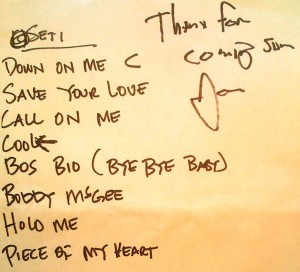 SET 1
DOWN ON ME C
SAVE YOUR LOVE
CALL ON ME
COO
BOS BIO (BYE BYE BABY)
BOBBY McGEE
HOLD ME
PIECE OF MY HEART
Thanx for
coming